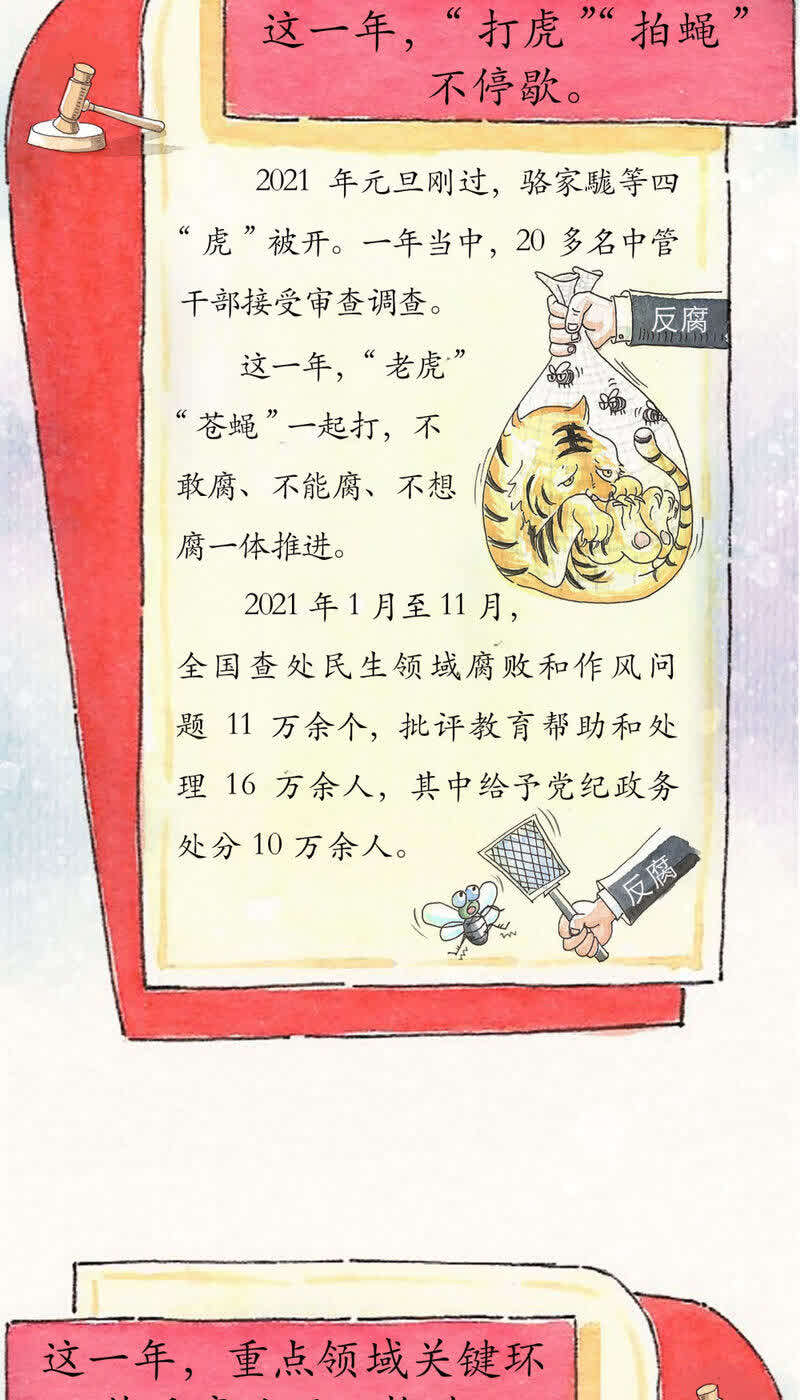 这一年，“打虎”“拍蝇”
不停歇。
2021 年元旦刚过，骆家駹等四
“虎”被开。一年当中，20 多名中管
干部接受审查调查。
反腐
这一年，“老虎”
“苍蝇”一起打，不
敢腐、不能腐、不想
腐一体推进。
2021 年 1 月至 11 月，
全国查处民生领域腐败和作风问
题 11 万余个，批评教育帮助和处
理 16 万余人，其中给予党纪政务
处分 10 万余人。
反腐
这一年，重点领域关键环